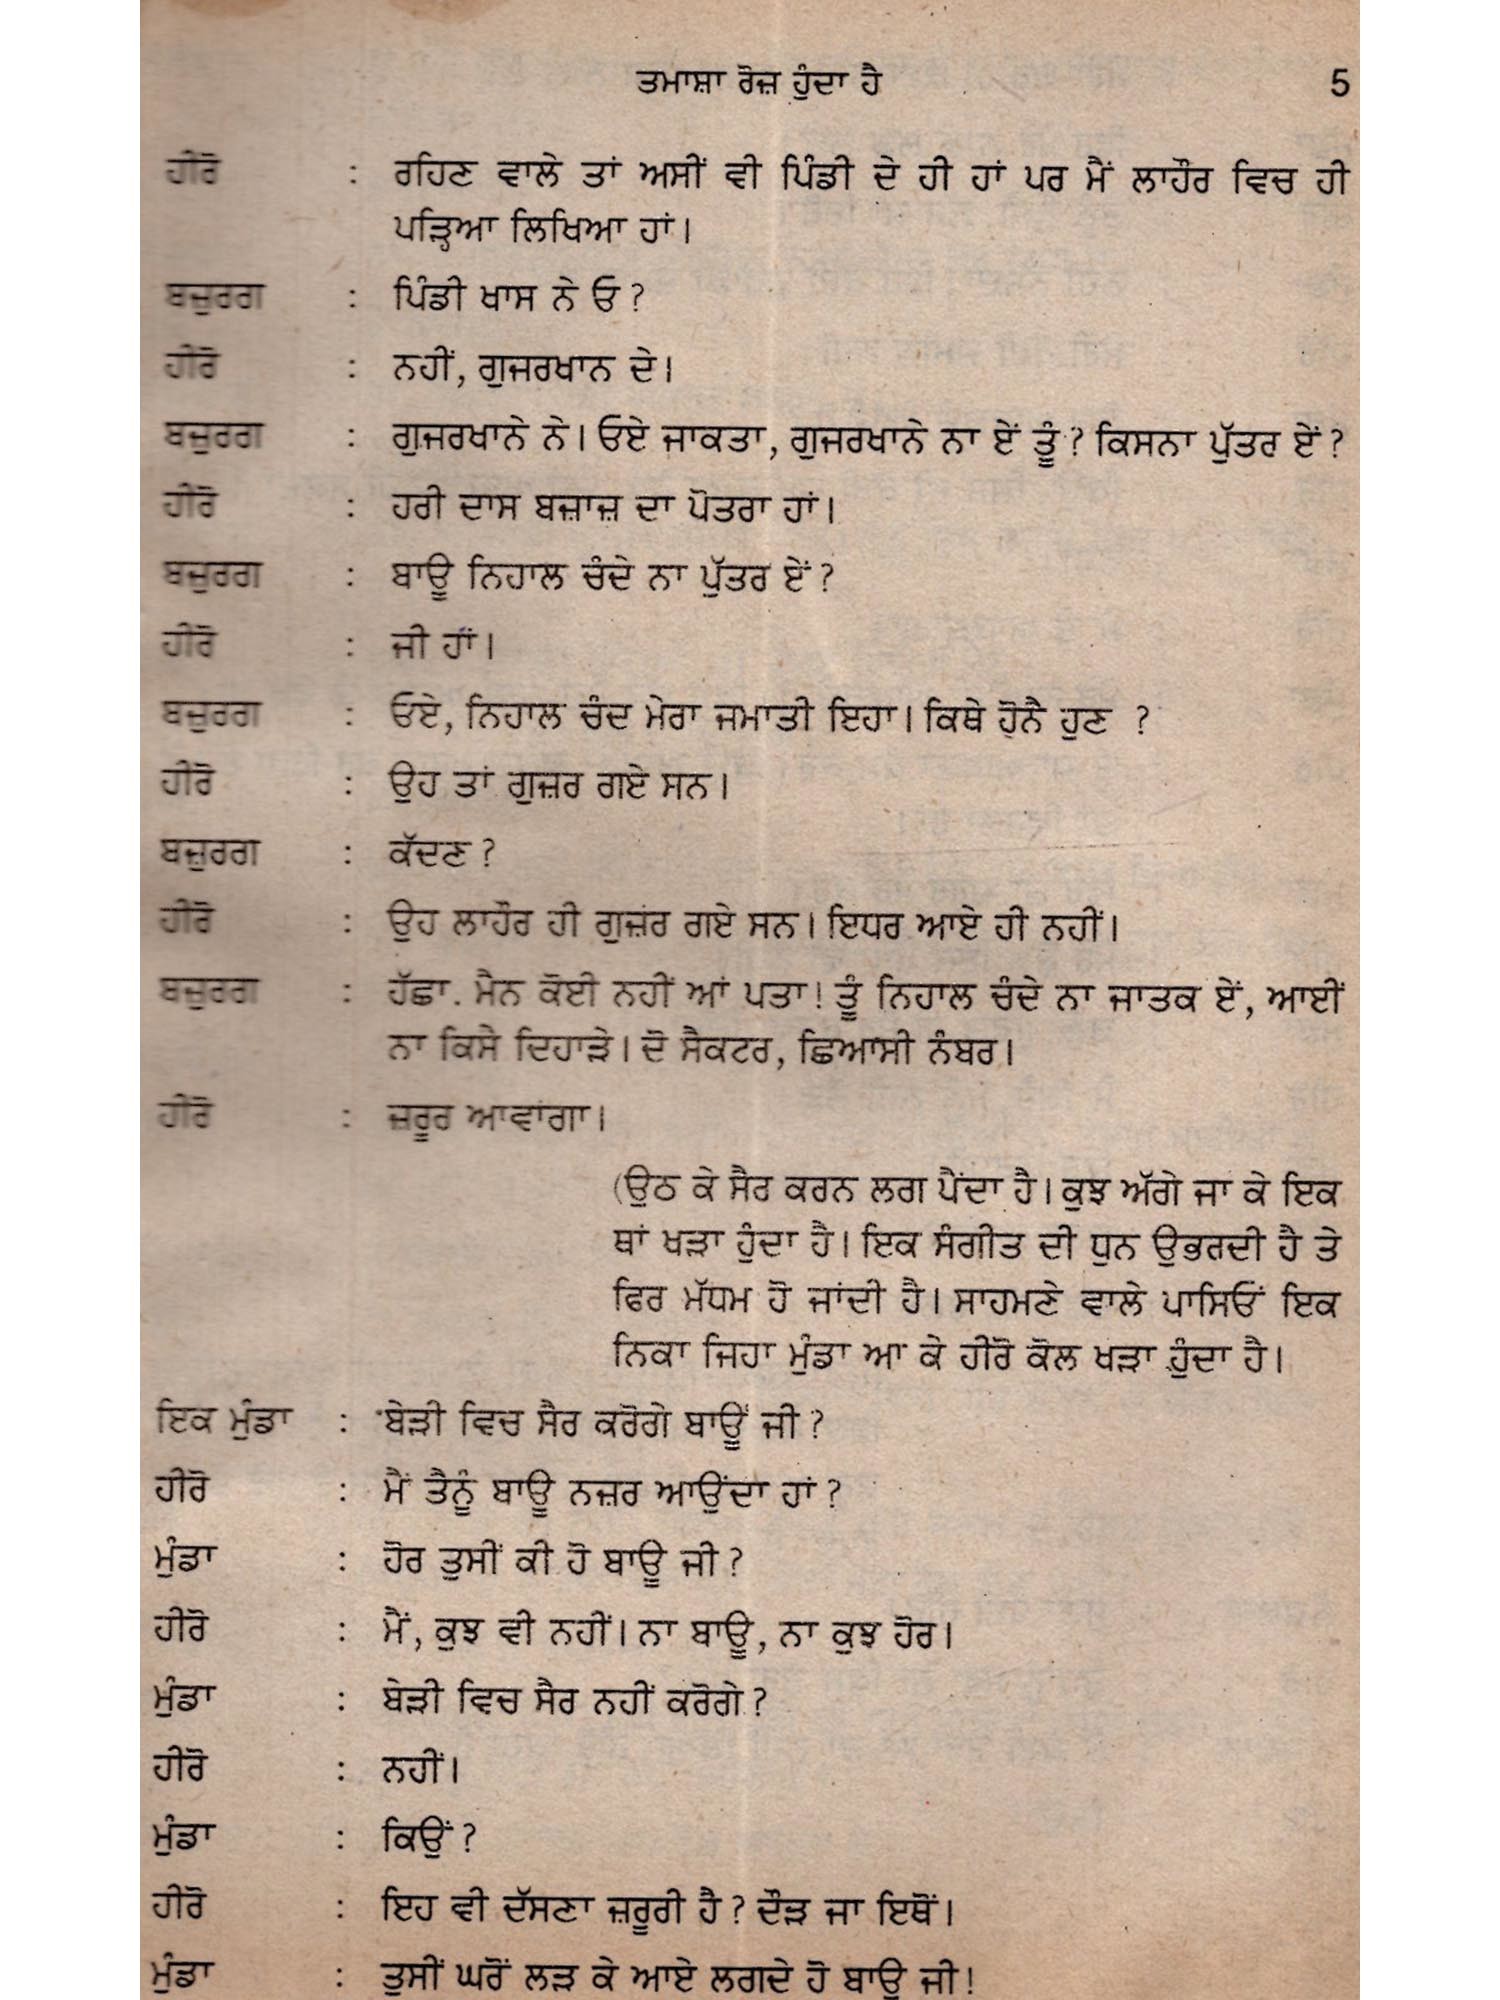 ਤਮਾਸ਼ਾ ਰੋਜ਼ ਹੁੰਦਾ ਹੈ 5
ਹੀਰੋ : ਰਹਿਣ ਵਾਲੇ ਤਾਂ ਅਸੀਂ ਵੀ ਪਿੰਡੀ ਦੇ ਹੀ ਹਾਂ ਪਰ ਮੈਂ ਲਾਹੌਰ ਵਿਚ ਹੀ
ਪੜ੍ਹਿਆ ਲਿਖਿਆ ਹਾਂ।
ਬਜ਼ੁਰਗ : ਪਿੰਡੀ ਖਾਸ ਨੇ ਓ ?
ਹੀਰੋ : ਨਹੀਂ, ਗੁਜਰਖਾਨ ਦੇ।
ਬਜ਼ੁਰਗ : ਗੁਜਰਖਾਨੇ ਨੇ। ਓਏ ਜਾਕਤਾ, ਗੁਜਰਖਾਨੇ ਨਾ ਏਂ ਤੂੰ ? ਕਿਸਨਾ ਪੁੱਤਰ ਏਂ ?
ਹੀਰੋ : ਹਰੀ ਦਾਸ ਬਜ਼ਾਜ਼ ਦਾ ਪੋਤਰਾ ਹਾਂ।
ਬਜ਼ੁਰਗ : ਬਾਊ ਨਿਹਾਲ ਚੰਦੇ ਨਾ ਪੁੱਤਰ ਏਂ ?
ਹੀਰੋ : ਜੀ ਹਾਂ।
ਬਜ਼ੁਰਗ : ਓਏ, ਨਿਹਾਲ ਚੰਦ ਮੇਰਾ ਜਮਾਤੀ ਇਹਾ। ਕਿਥੇ ਹੋਨੈ ਹੁਣ ?
ਹੀਰੋ : ਉਹ ਤਾਂ ਗੁਜ਼ਰ ਗਏ ਸਨ।
ਬਜ਼ੁਰਗ : ਕੱਦਣ ?
ਹੀਰੋ : ਉਹ ਲਾਹੌਰ ਹੀ ਗੁਜ਼ਰ ਗਏ ਸਨ। ਇਧਰ ਆਏ ਹੀ ਨਹੀਂ।
ਬਜ਼ੁਰਗ : ਹੱਛਾ. ਮੈਨ ਕੋਈ ਨਹੀਂ ਆਂ ਪਤਾ! ਤੂੰ ਨਿਹਾਲ ਚੰਦੇ ਨਾ ਜਾਤਕ ਏਂ, ਆਈਂ
ਨਾ ਕਿਸੇ ਦਿਹਾੜੇ। ਦੋ ਸੈਕਟਰ, ਛਿਆਸੀ ਨੰਬਰ।
ਹੀਰੋ : ਜ਼ਰੂਰ ਆਵਾਂਗਾ।
(ਉਠ ਕੇ ਸੈਰ ਕਰਨ ਲਗ ਪੈਂਦਾ ਹੈ। ਕੁਝ ਅੱਗੇ ਜਾ ਕੇ ਇਕ
ਥਾਂ ਖੜਾ ਹੁੰਦਾ ਹੈ। ਇਕ ਸੰਗੀਤ ਦੀ ਧੁਨ ਉਭਰਦੀ ਹੈ ਤੇ
ਫਿਰ ਮੱਧਮ ਹੋ ਜਾਂਦੀ ਹੈ। ਸਾਹਮਣੇ ਵਾਲੇ ਪਾਸਿਓਂ ਇਕ
ਨਿਕਾ ਜਿਹਾ ਮੁੰਡਾ ਆ ਕੇ ਹੀਰੋ ਕੋਲ ਖੜਾ ਹੁੰਦਾ ਹੈ।
ਇਕ ਮੁੰਡਾ : ਬੇੜੀ ਵਿਚ ਸੈਰ ਕਰੋਗੇ ਬਾਊਂ ਜੀ ?
ਹੀਰੋ : ਮੈਂ ਤੈਨੂੰ ਬਾਊ ਨਜ਼ਰ ਆਉਂਦਾ ਹਾਂ ?
ਮੁੰਡਾ : ਹੋਰ ਤੁਸੀਂ ਕੀ ਹੋ ਬਾਊ ਜੀ ?
ਹੀਰੋ : ਮੈਂ, ਕੁਝ ਵੀ ਨਹੀਂ। ਨਾ ਬਾਊ, ਨਾ ਕੁਝ ਹੋਰ।
ਮੁੰਡਾ : ਬੇੜੀ ਵਿਚ ਸੈਰ ਨਹੀਂ ਕਰੋਗੇ ?
ਹੀਰੋ : ਨਹੀਂ।
ਮੁੰਡਾ : ਕਿਉਂ ?
ਹੀਰੋ : ਇਹ ਵੀ ਦੱਸਣਾ ਜ਼ਰੂਰੀ ਹੈ ? ਦੌੜ ਜਾ ਇਥੋਂ।
ਮੁੰਡਾ : ਤੁਸੀਂ ਘਰੋਂ ਲੜ ਕੇ ਆਏ ਲਗਦੇ ਹੋ ਬਾਊ ਜੀ !